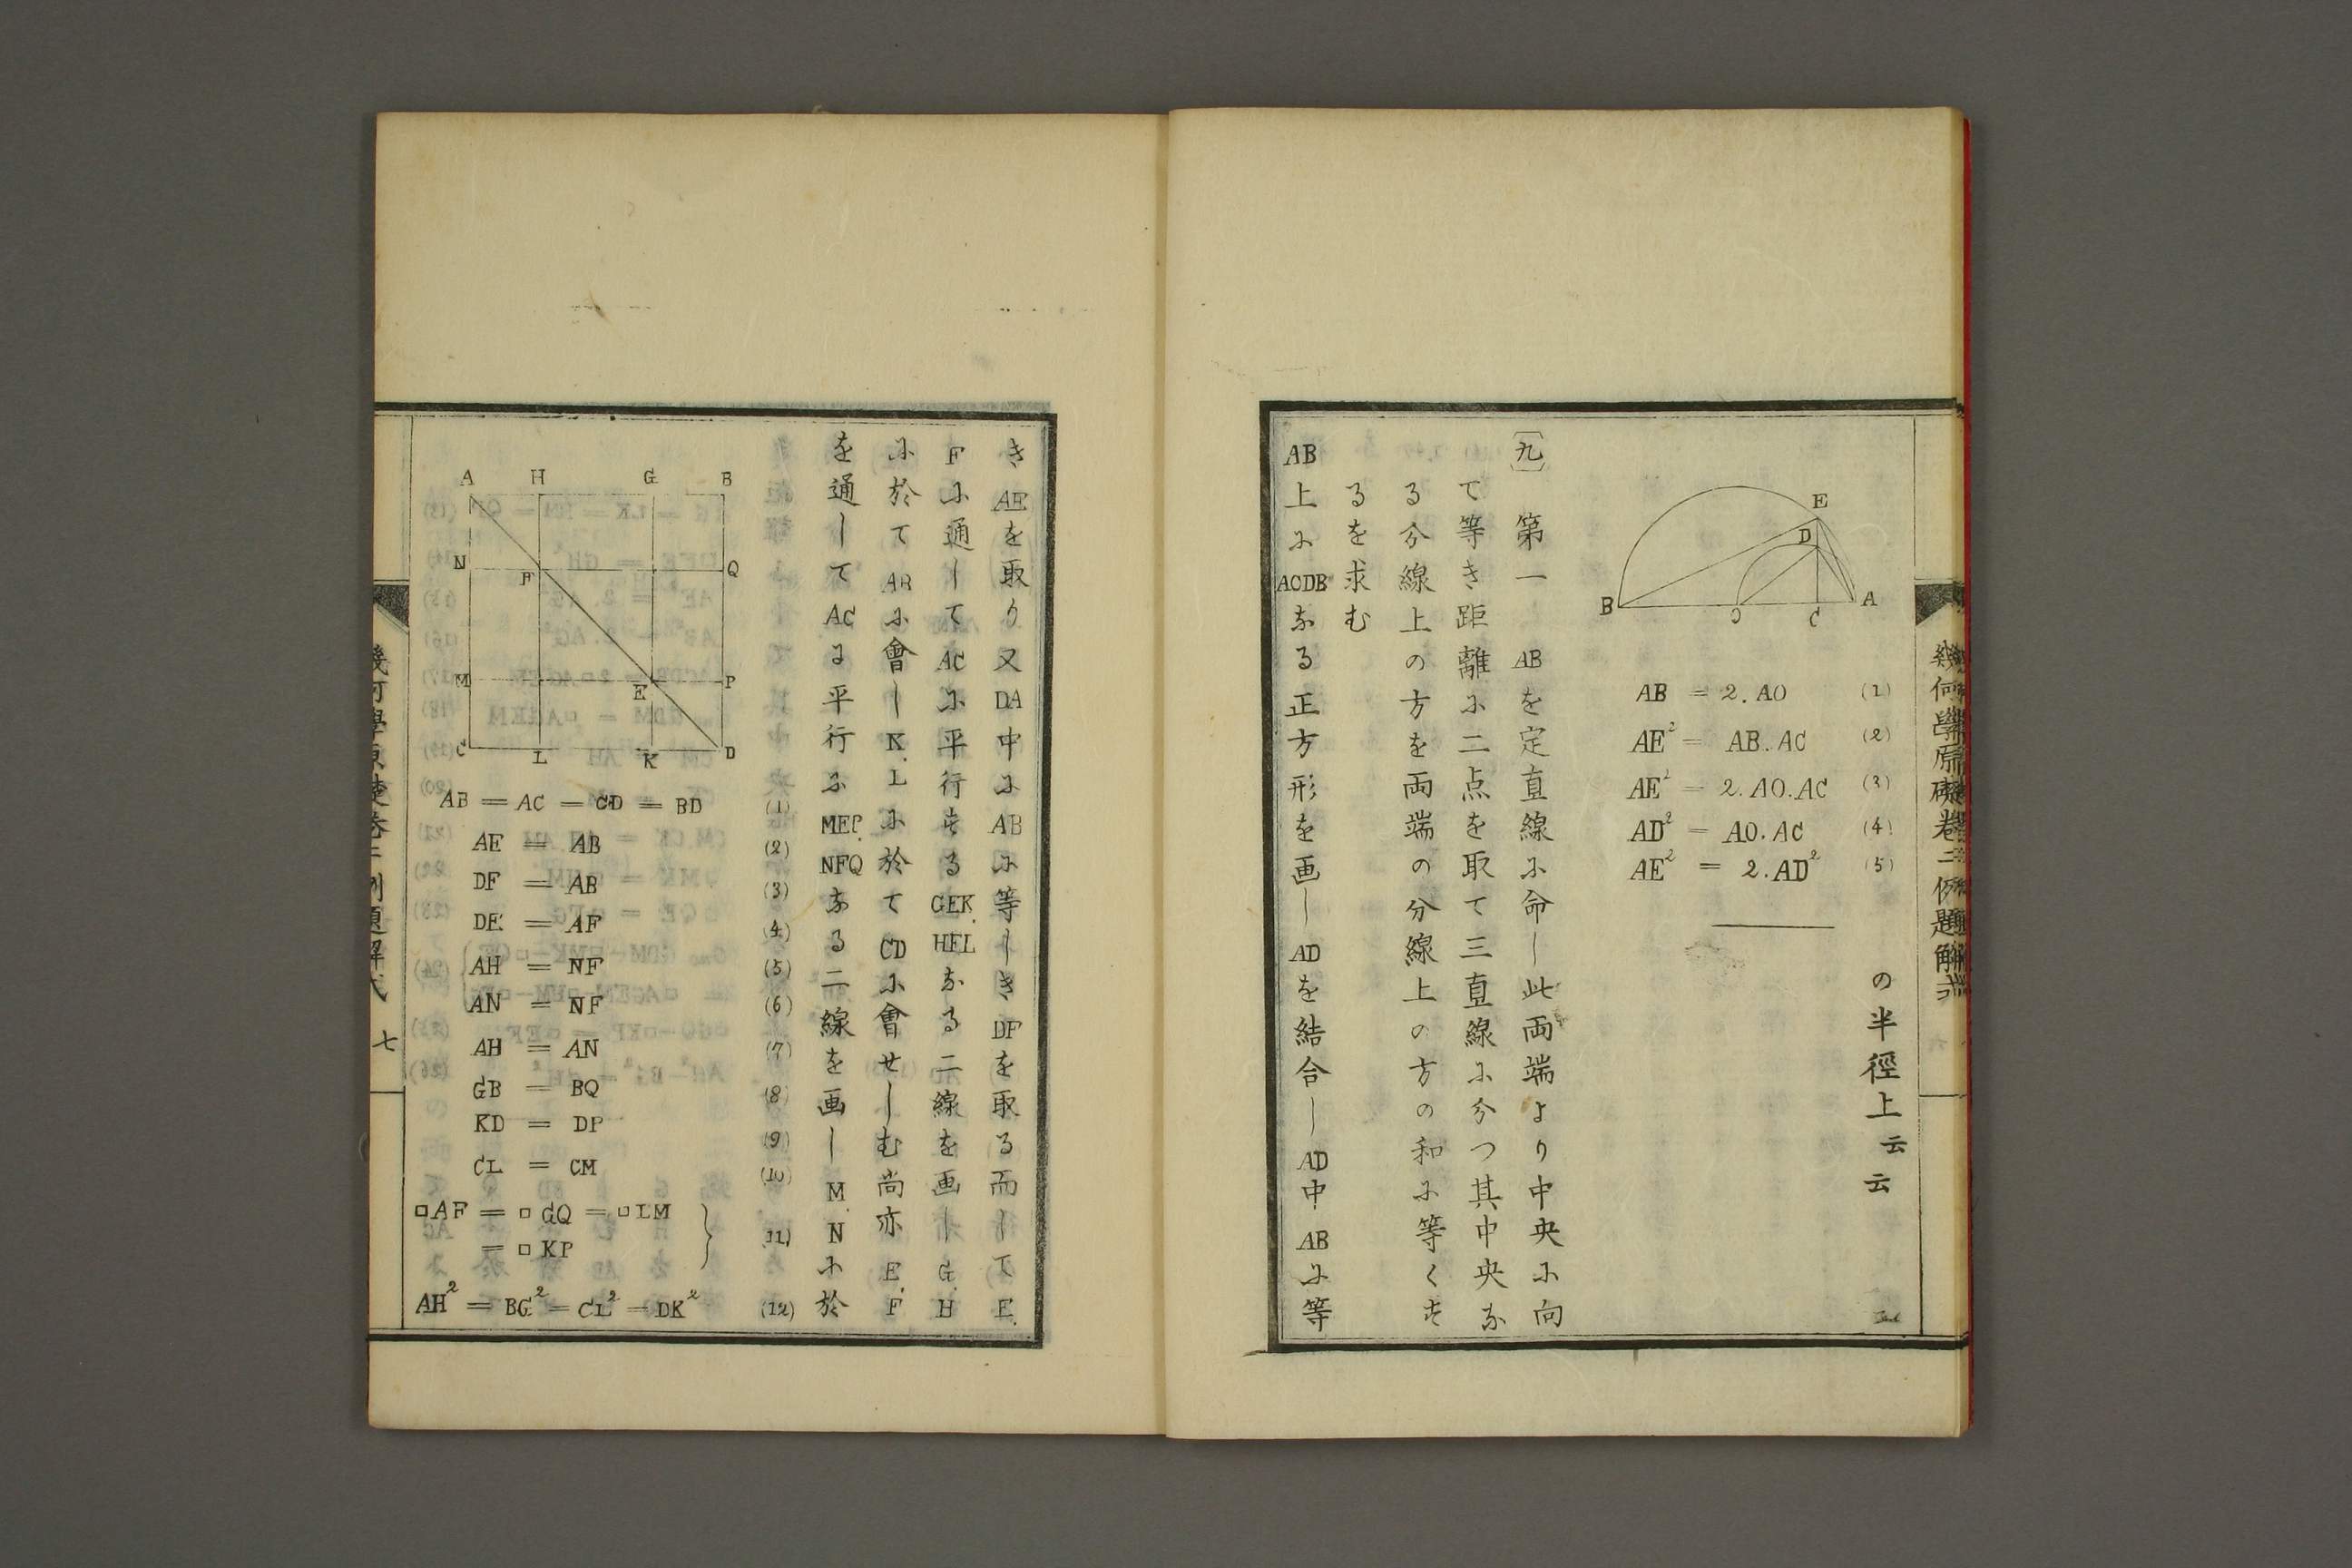 幾何學原礎卷二例題解式
の半徑上云云
E
D
B
O
C
A
AB = 2.AO (1)
AE² = AB.AC (2)
AE² = 2.AO.AC (3)
AD² = AO.AC (4)
AE² = 2.AD² (5)
〔九〕 第一 ABを定直線ふ命し此両端より中央ふ向
て等き距離ふ二点を取て三直線ふ分つ其中央な
る分線上の方を両端の分線上の方の和ふ等くす
るを求む
AB上ふACDBなる正方形を画しADを結合しAD中ABふ等
きAEを取り又DA中ふABふ等しきDFを取る而してE.
Fふ通してACふ平行せるGEK.HFLなる二線を画しG.H
ふ於てABふ會しK.Lふ於てCDふ會せしむ尚亦E.F
を通してACに平行ふMEP.NFQなる二線を画しM.Nふ於
A H G B
N F Q
M E P
C L K D
AB = AC = CD = BD (1)
AE = AB (2)
DF = AB (3)
DE = AF (4)
AH = NF (5)
AN = NF (6)
AH = AN (7)
GB = BQ (8)
KD = DP (9)
CL = CM (10)
□AF = □GQ = □LM
= □KP (11)
AH² = BG² = CL² = DK² (12)
幾何學原礎卷二例題解式 七